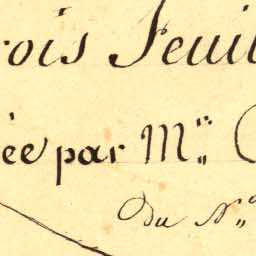 rois Feuil
ée par M.r
Du N.o